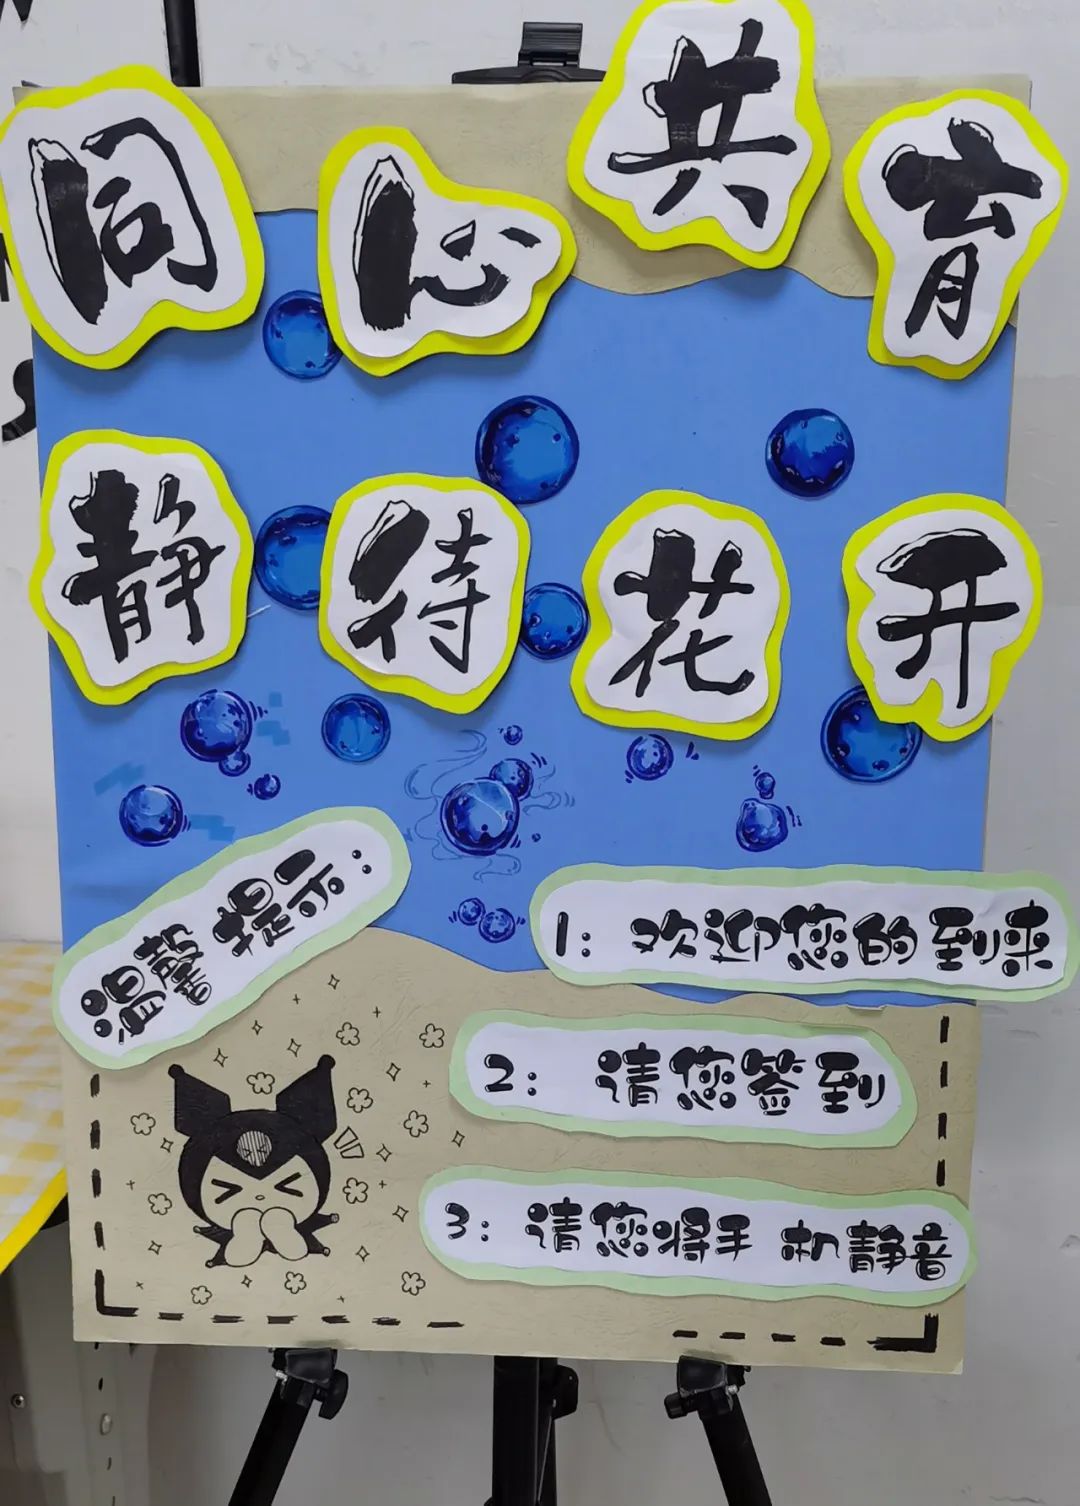 同心共育
静待花开
温馨提示：
1：欢迎您的到来
2：请您签到
3：请您将手机静音